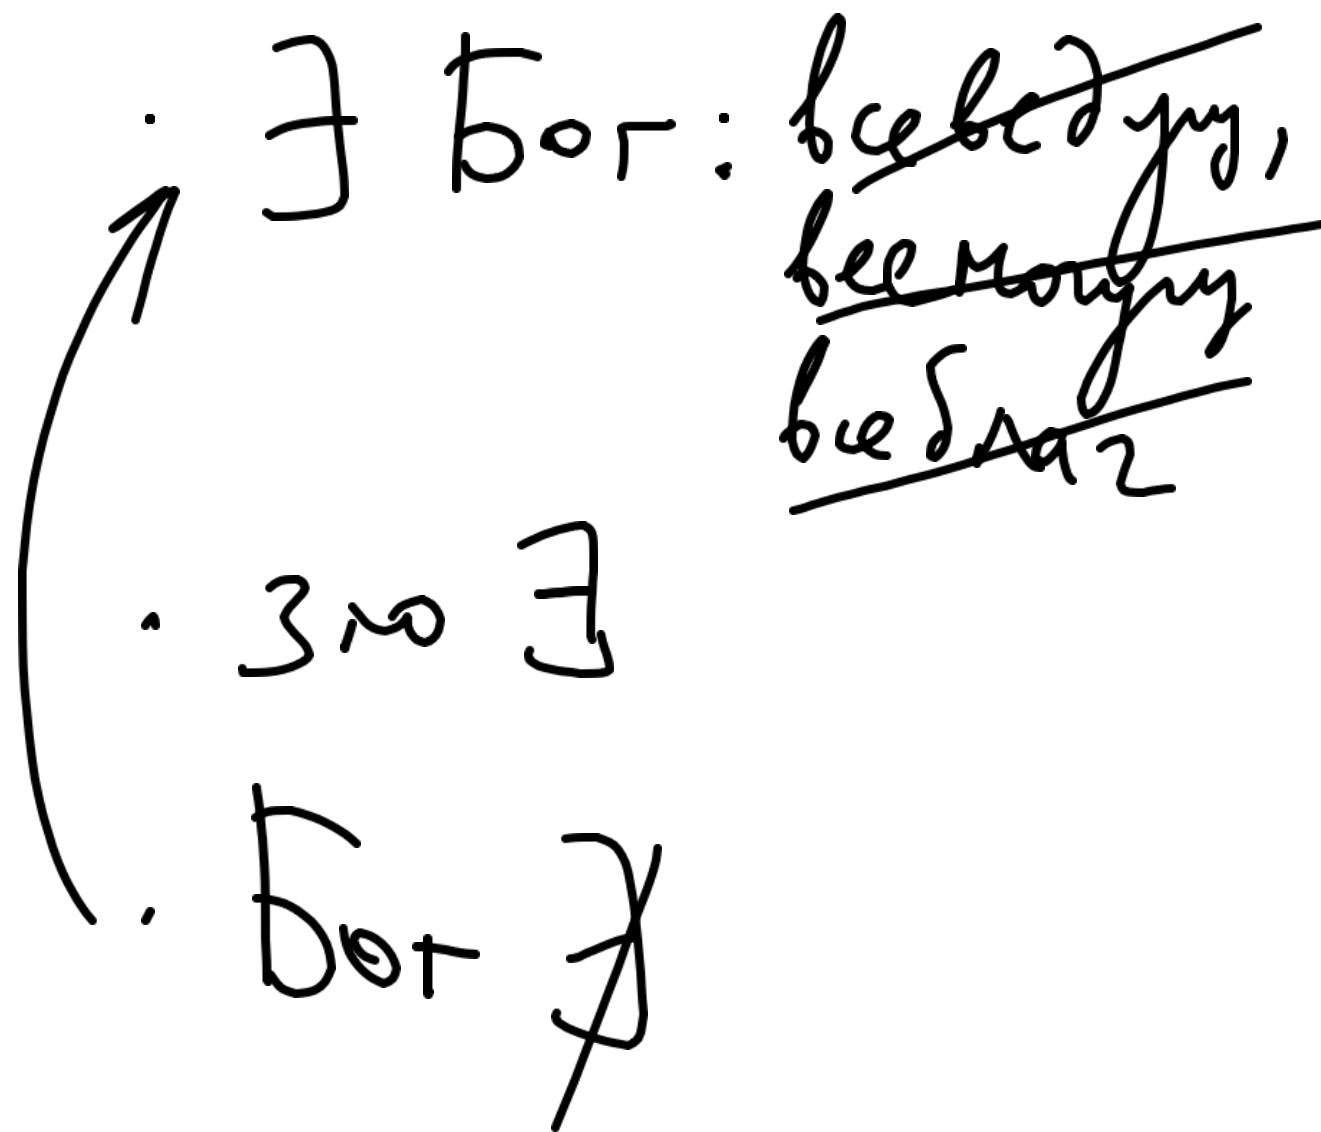 · ∃ Бог: всеведущ,
всемогущ
всеблаг
· зло ∃
· Бог ∄